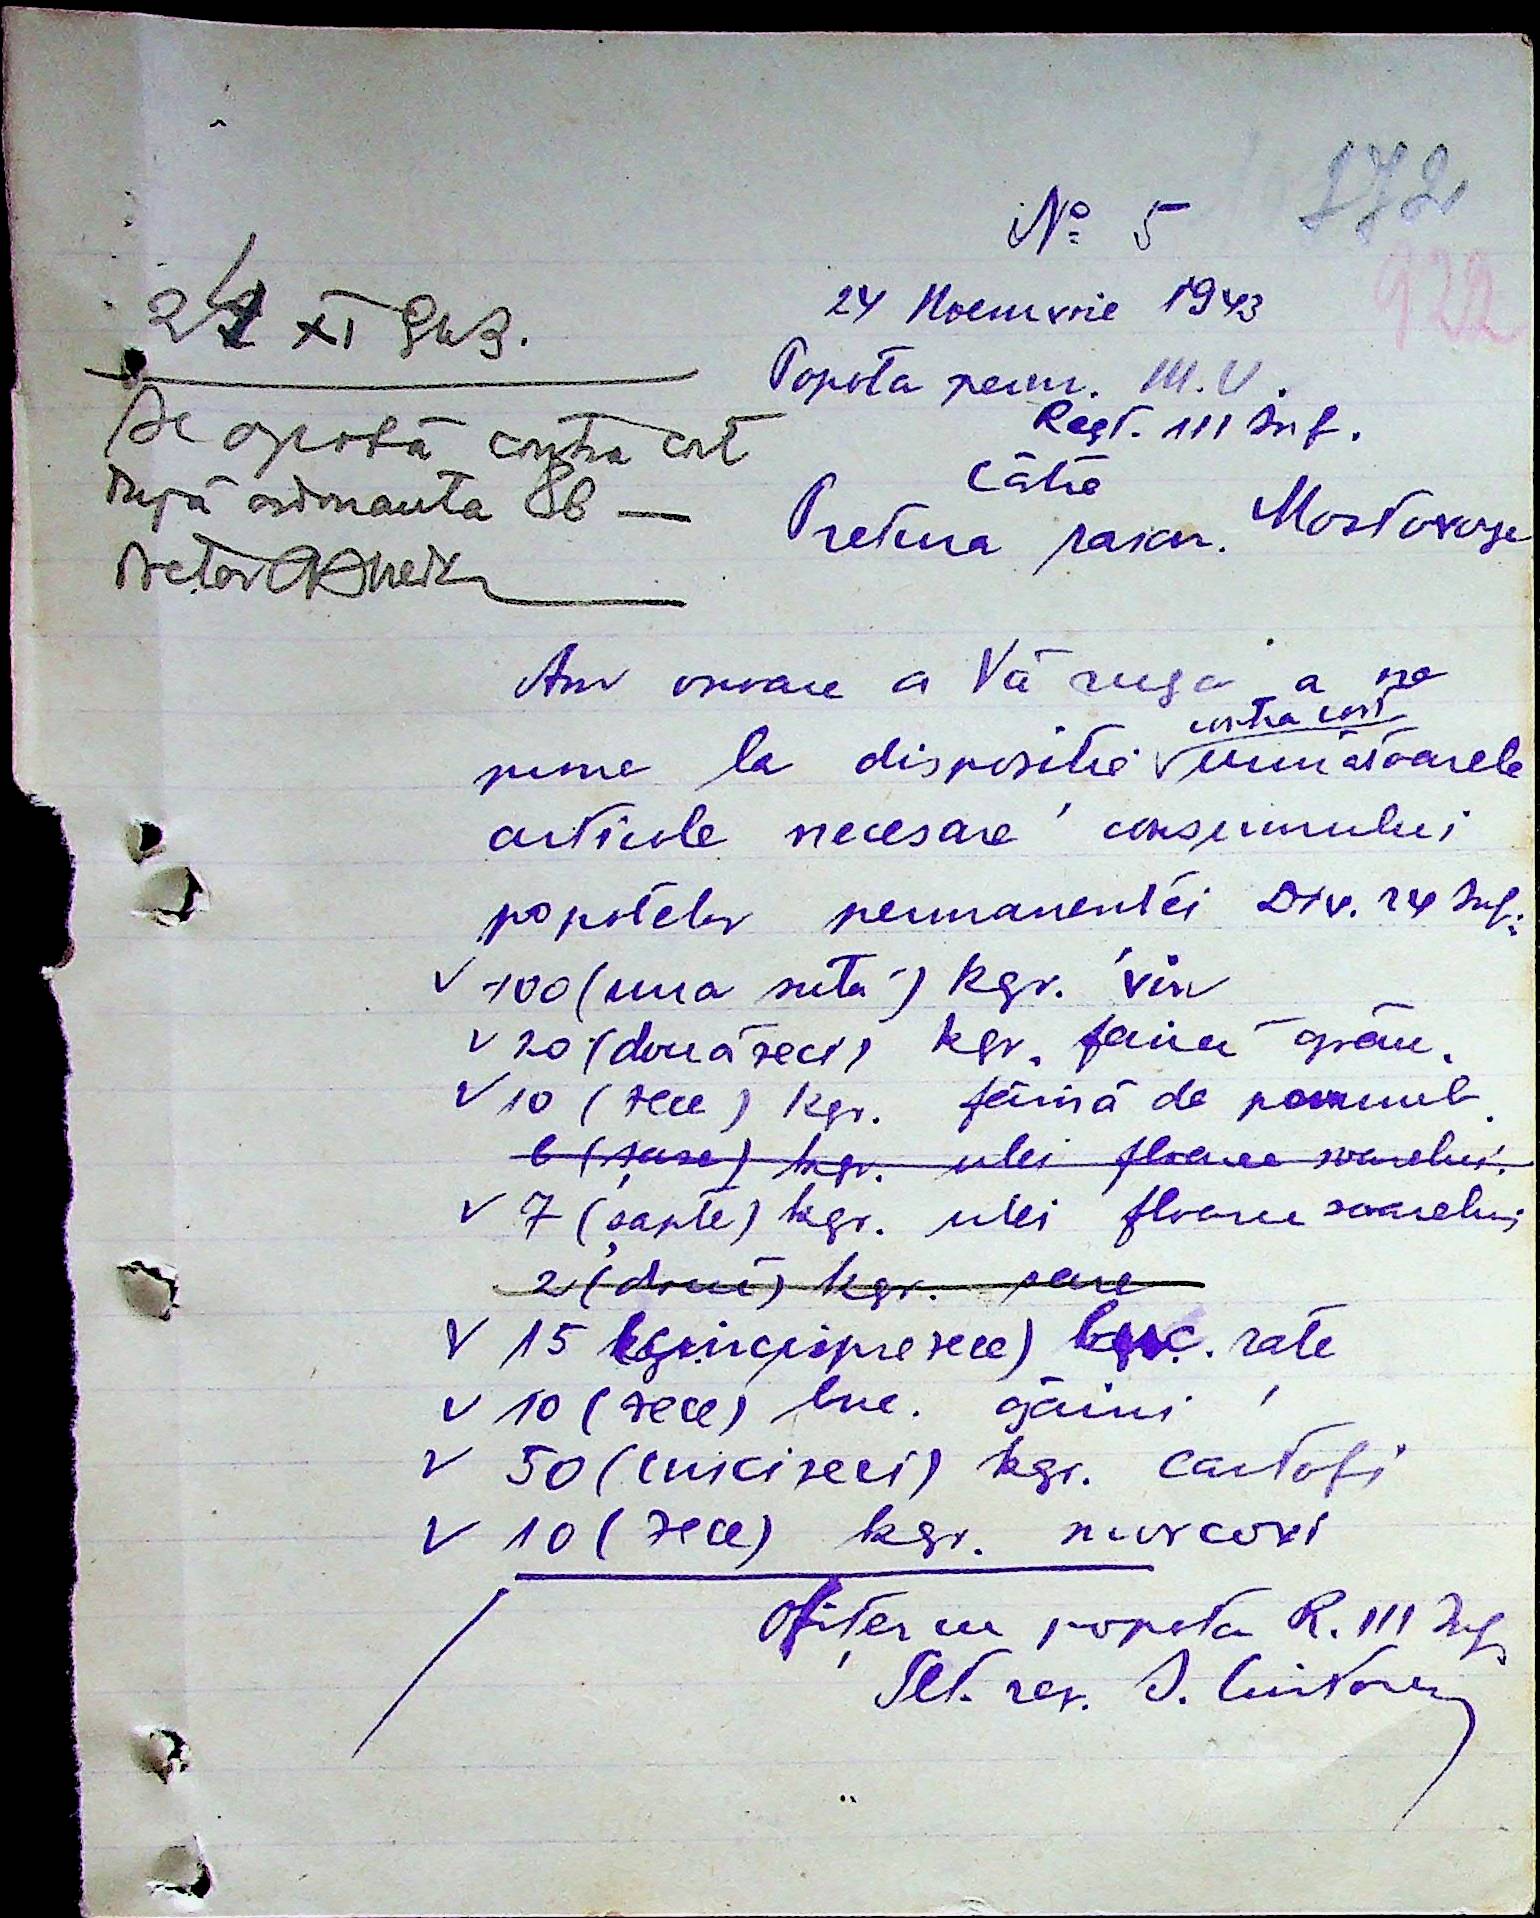 172
922
No 5
24 Noemvrie 1943
Popota perm. III. V.
Regt. III Inf.
Către
Pretura raion. Mostovoye
24 XI 943.
Se aprobă contra cost
după ordonanta 86 —
Pretor
Am onoare a Vă ruga a ne
pune la dispositie contra cost următoarele
articole necesare consumului
popotelor permanentei Div. 24 Inf:
v 100 (una sută) kgr. vin
v 20 (douăzeci) kgr. faină grâu.
v 10 (zece) kgr. făină de porumb.
6 (șase) kgr. ulei floarea soarelui.
v 7 (șapte) kgr. ulei floarea soarelui
2 (două) kgr.
v 15 (cincisprezece) buc. rațe
v 10 (zece) buc. găini
v 50 (cincizeci) kgr. cartofi
v 10 (zece) kgr. morcovi
Ofițer cu popota R. III Inf.
Slt. rez. I.